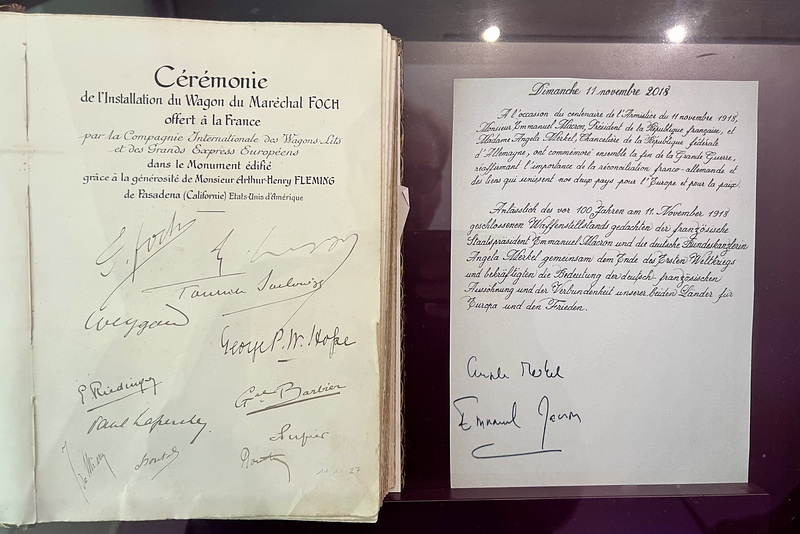 Cérémonie
de l'Installation du Wagon du Maréchal FOCH
offert à la France
par la Compagnie Internationale des Wagons Lits
et des Grands Express Européens
dans le Monument édifié
grâce à la générosité de Monsieur Arthur-Henry FLEMING
de Pasadena (Californie) Etats-Unis d'Amérique
F. Foch
Weygand
George P. W. Hope
P. Riedinger
Gal Barbier
Paul
11.11.27
Dimanche 11 novembre 2018
A l'occasion du centenaire de l'Armistice du 11 novembre 1918,
Monsieur Emmanuel Macron, Président de la République française, et
Madame Angela Merkel, Chancelière de la République fédérale
d'Allemagne, ont commémoré ensemble la fin de la Grande Guerre,
réaffirmant l'importance de la réconciliation franco-allemande et
des liens qui unissent nos deux pays pour l'Europe et pour la paix.
Anlässlich des vor 100 Jahren am 11. November 1918
geschlossenen Waffenstillstands gedachten der französische
Staatspräsident Emmanuel Macron und die deutsche Bundeskanzlerin
Angela Merkel gemeinsam dem Ende des Ersten Weltkriegs
und bekräftigten die Bedeutung der deutsch-französischen
Aussöhnung und der Verbundenheit unserer beiden Länder für
Europa und den Frieden.
Angela Merkel
Emmanuel Macron